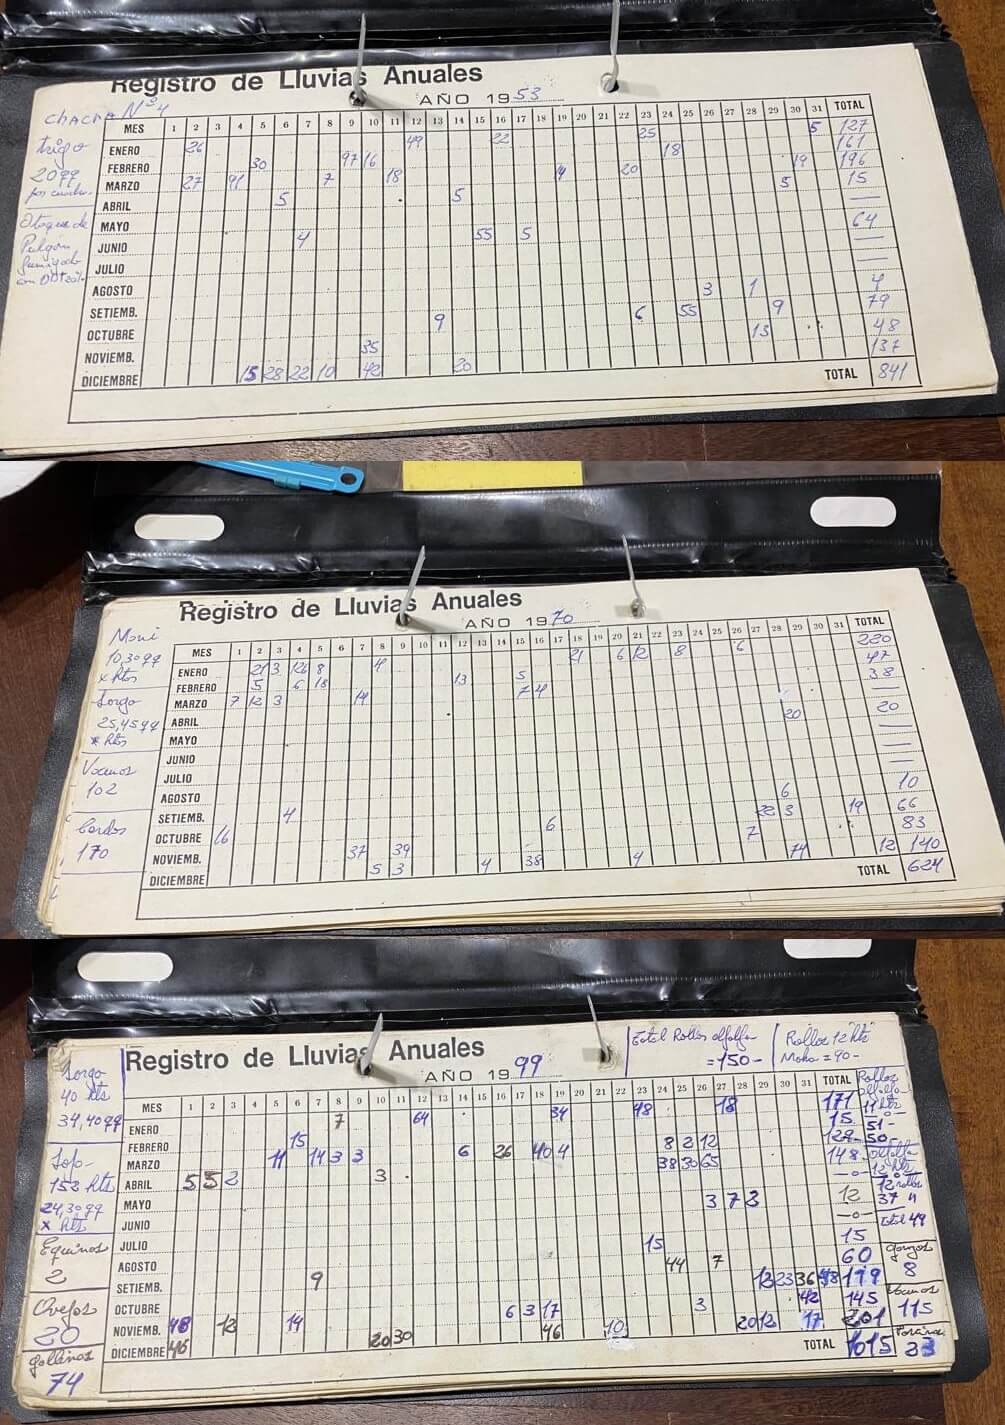 Registro de Lluvias Anuales
AÑO 1953
CHACRA Nº 4
trigo
20 qq
por cuadra.
Ataque de
Pulgón
fumigado
MES 1 2 3 4 5 6 7 8 9 10 11 12 13 14 15 16 17 18 19 20 21 22 23 24 25 26 27 28 29 30 31 TOTAL
ENERO 26 49 22 25 5 127
FEBRERO 30 97 16 18 161
MARZO 27 91 7 18 4 20 19 196
ABRIL 5 5 5 15
MAYO —
JUNIO 4 55 5 64
JULIO —
AGOSTO —
SETIEMB. 3 1 4
OCTUBRE 9 6 55 9 79
NOVIEMB. 35 13 48
DICIEMBRE 15 28 22 10 42 20 137
TOTAL 841
Registro de Lluvias Anuales
AÑO 1970
Mani
10,30 qq
x hts
Sorgo
25,45 qq
x hts
Vacunos
102
Cerdos
170
MES 1 2 3 4 5 6 7 8 9 10 11 12 13 14 15 16 17 18 19 20 21 22 23 24 25 26 27 28 29 30 31 TOTAL
ENERO 21 3 126 8 4 21 6 12 8 6 220
FEBRERO 5 6 18 13 5 47
MARZO 7 12 3 14 7 4 38
ABRIL —
MAYO 20 20
JUNIO —
JULIO —
AGOSTO —
SETIEMB. 4 6 10
OCTUBRE 16 6 22 3 19 66
NOVIEMB. 37 39 7 83
DICIEMBRE 5 3 4 38 4 74 12 140
TOTAL 624
Registro de Lluvias Anuales
AÑO 1999
Total Rollos alfalfa
=150-
Rollos 12 hts
Moha = 90-
Sorgo
40 hts
34,40 qq
Soja-
152 hts
24,30 qq
x hts
Equinos
2
Ovejas
30
gallinas
74
MES 1 2 3 4 5 6 7 8 9 10 11 12 13 14 15 16 17 18 19 20 21 22 23 24 25 26 27 28 29 30 31 TOTAL
ENERO 7 64 34 48 18 171
FEBRERO 15 15
MARZO 11 14 3 3 6 26 40 4 8 2 12 129
ABRIL 5 5 2 3 38 30 65 148
MAYO —0—
JUNIO 3 7 2 12
JULIO —0—
AGOSTO 15 15
SETIEMB. 9 44 7 60
OCTUBRE 6 3 17 3 13 23 36 48 199
NOVIEMB. 48 12 14 42 145
DICIEMBRE 46 20 30 46 10 20 12 17 201
TOTAL 1015
Rollos
11 hts
51-
50-
alfalfa
12 hts
12 rollos
37 "
total 49
8
Vacunos
115